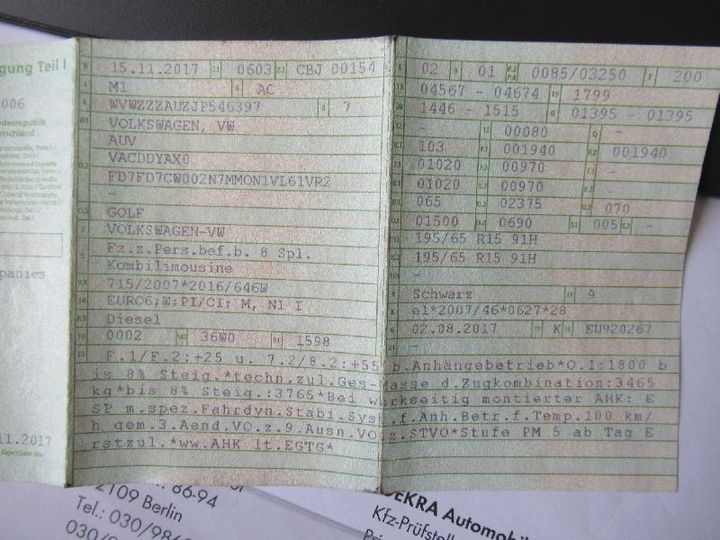 gung Teil I
006
ndesrepublik
eutschland
panies
11.2017
B 15.11.2017 2.1 0603 2.2 CBJ 00154
J M1 4 AC
E WVWZZZAUZJP546397 3 7
VOLKSWAGEN, VW
AUV
VACDDYAX0
FD7FD7CW002N7MMON1VL61VR2
-
GOLF
VOLKSWAGEN-VW
Fz.z.Pers.bef.b. 8 Spl.
Kombilimousine
715/2007*2016/646W
EURO6;W;PI/CI; M, N1 I
Diesel
0002 36W0 1598
L 02 9 01 P.2/P.4 0085/03250 T 200
18 04567 - 04674 19 1799
20 1446 - 1515 G 01395 - 01395
- 13 00080 Q -
103 F.1 001940 F.2 001940
01020 00970 -
01020 00970 -
065 02375 070
01500 0690 S.1 005 S.2 -
195/65 R15 91H
195/65 R15 91H
-
Schwarz 11 9
e1*2007/46*0627*28
02.08.2017 17 K 16 EU920267
-
22 F.1/F.2:+25 u. 7.2/8.2:+55 b.Anhängebetrieb*O.1:1800 b
is 8% Steig.*techn.zul.Ges-Masse d.Zugkombination:3465
kg*bis 8% Steig.:3765*Bei werkseitig montierter AHK: E
SP m.spez.Fahrdyn.Stabi.Syst.f.Anh.Betr.f.Temp.100 km/
h gem.3.Aend.VO.z.9.Ausn.VO.z.STVO*Stufe PM 5 ab Tag E
rstzul.*ww.AHK lt.EGTG*
86-94
2109 Berlin
Tel.: 030/986
030/9
DEKRA Automobil
Kfz-Prüfstell